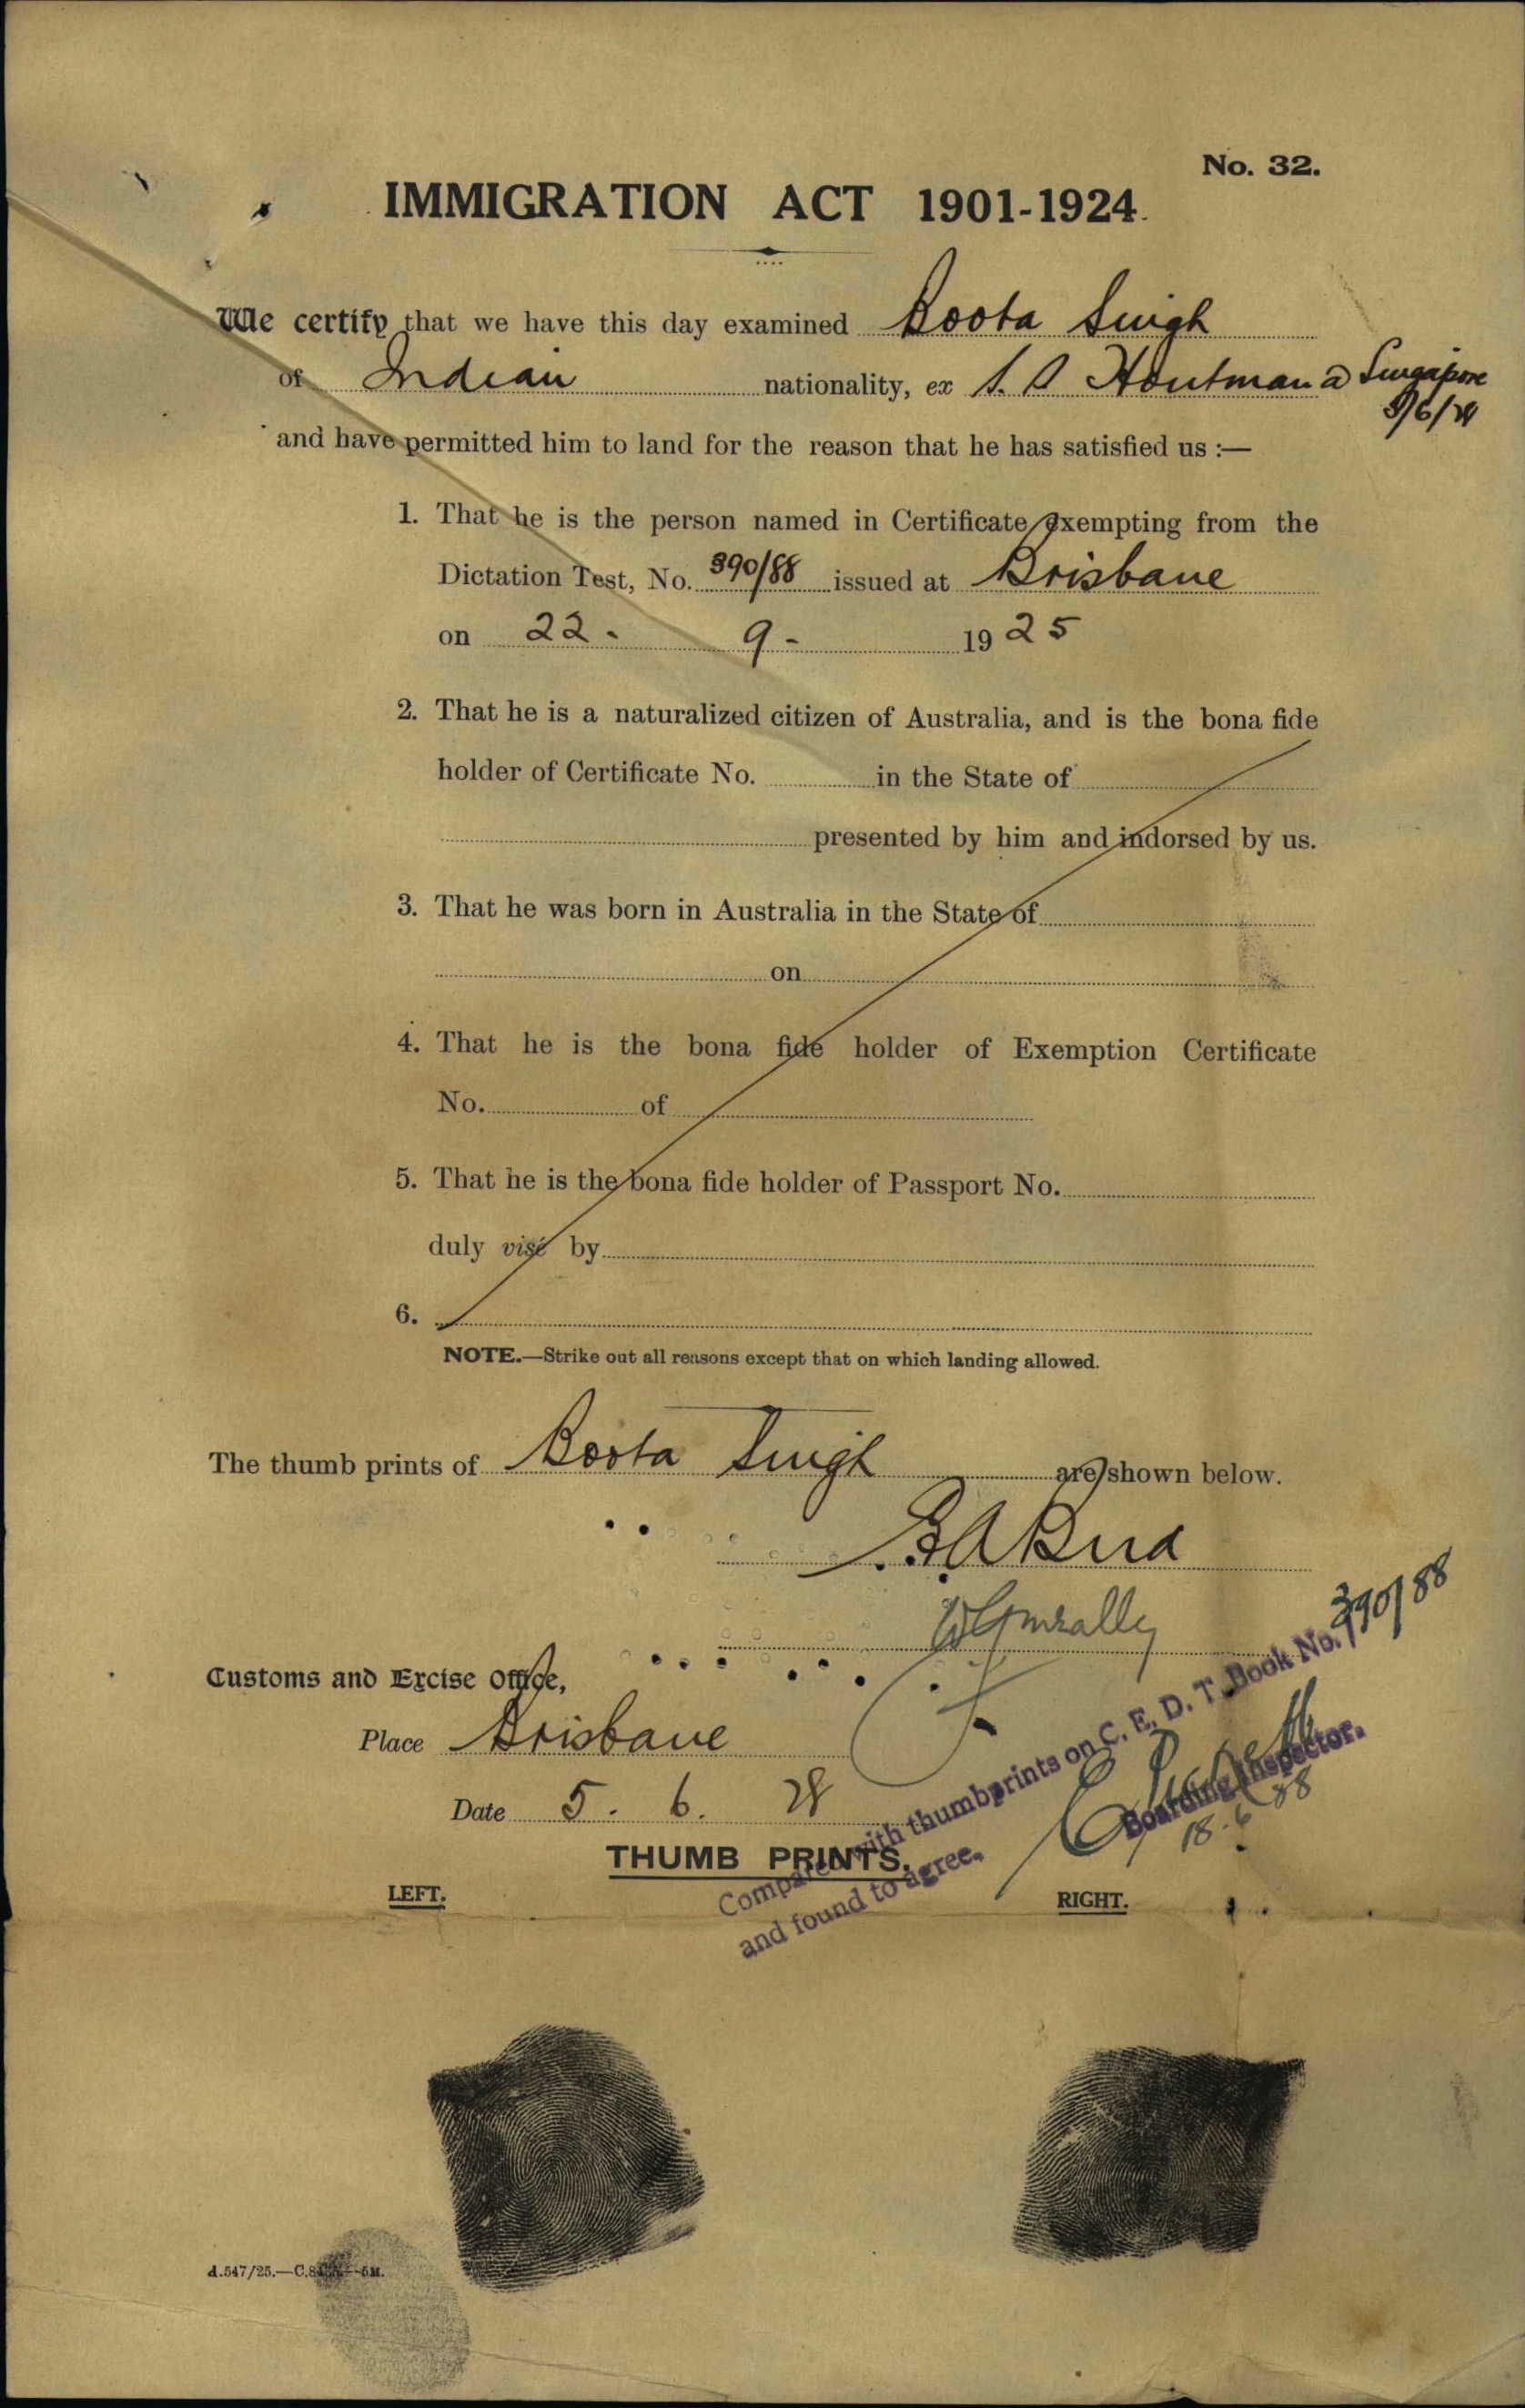 No. 32.
IMMIGRATION ACT 1901-1924.
We certify that we have this day examined Boota Singh
of Indian nationality, ex S. S Houtman a Singapore
5/6/28
and have permitted him to land for the reason that he has satisfied us :—
1. That he is the person named in Certificate exempting from the
Dictation Test, No. 390/88 issued at Brisbane
on 22 - 9 - 1925
2. That he is a naturalized citizen of Australia, and is the bona fide
holder of Certificate No. in the State of
presented by him and indorsed by us.
3. That he was born in Australia in the State of
on
4. That he is the bona fide holder of Exemption Certificate
No. of
5. That he is the bona fide holder of Passport No.
duly visé by
6.
NOTE.—Strike out all reasons except that on which landing allowed.
The thumb prints of Boota Singh are shown below.
390/88
Customs and Excise Office,
Place Brisbane
Date 5. 6. 28
Compared with thumbprints on C. E. D. T. Book No.
and found to agree.
Boarding Inspector.
THUMB PRINTS.
LEFT.
RIGHT.